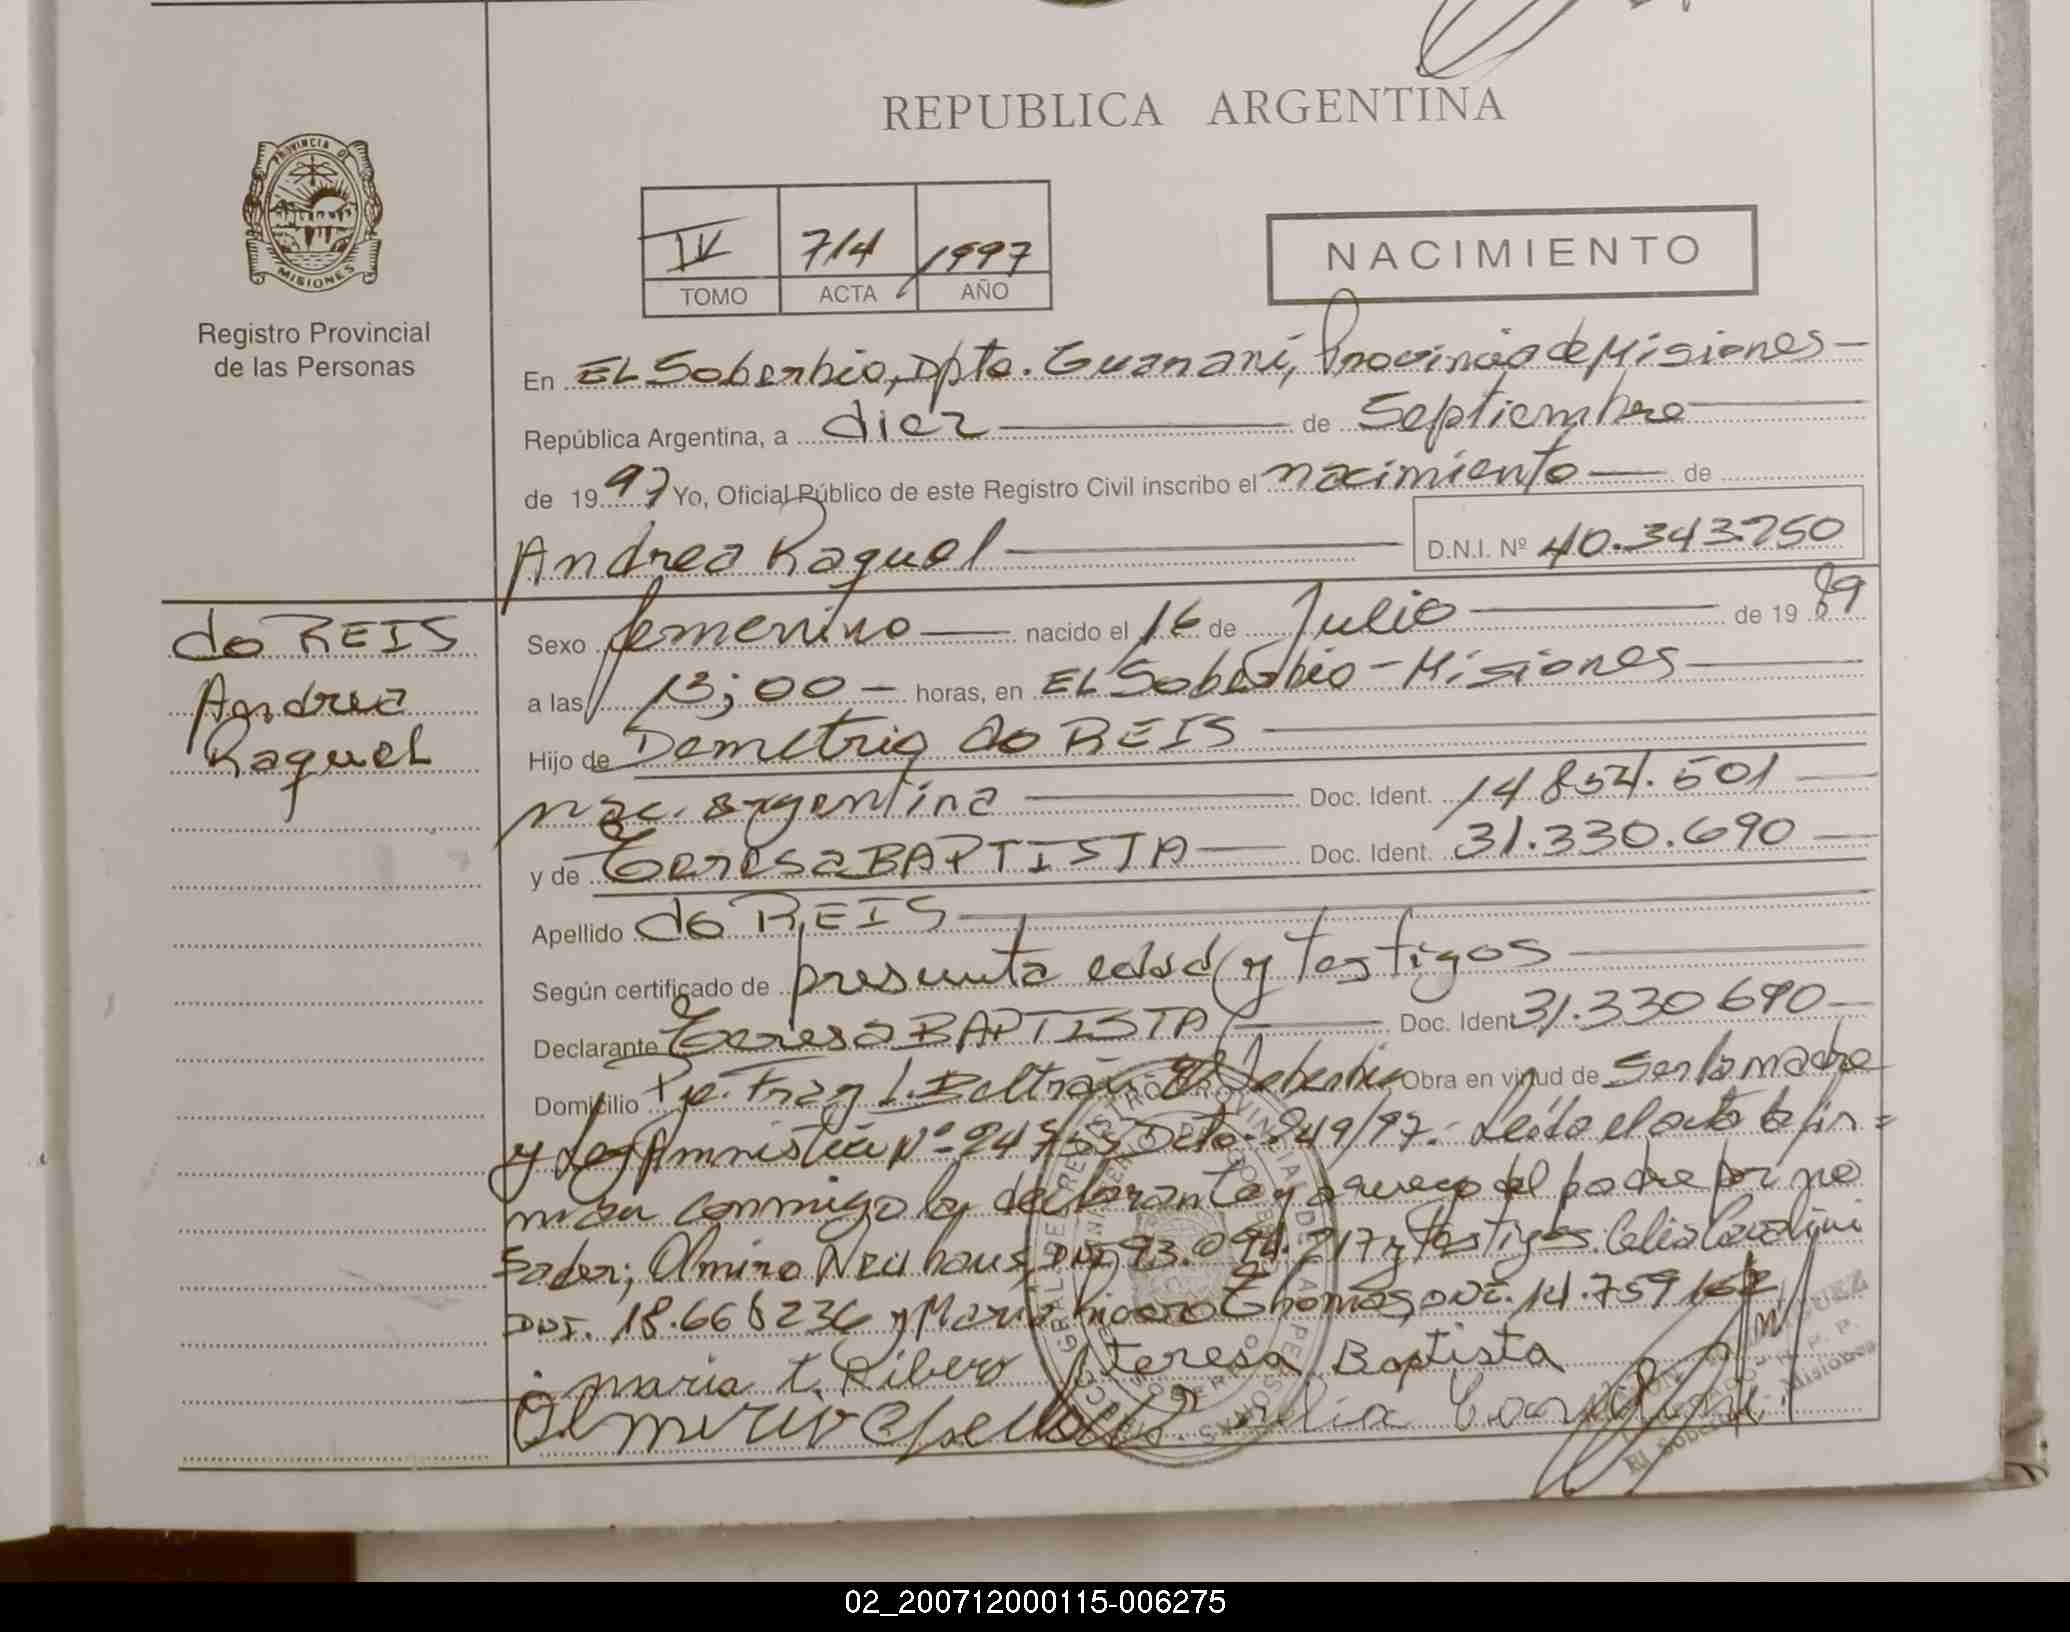 REPUBLICA ARGENTINA
PROVINCIA DE
MISIONES
Registro Provincial
de las Personas
IV 714 1997
TOMO ACTA AÑO
NACIMIENTO
En EL Soberbio, Dpto. Guaraní, Provincia de Misiones
República Argentina, a diez de Septiembre
de 1997 Yo, Oficial Público de este Registro Civil inscribo el nacimiento de
Andrea Raquel D.N.I. Nº 40.343.750
do REIS
Andrea
Raquel
Sexo femenino nacido el 16 de Julio de 1989
a las 13;00 horas, en EL Soberbio - Misiones
Hijo de Demetrio do REIS
nac. argentina Doc. Ident. 14 854.501
y de Teresa BAPTISTA Doc. Ident. 31.330.690
Apellido do REIS
Según certificado de presunta edad y testigos
Declarante Teresa BAPTISTA Doc. Ident 31.330 690
Domicilio Pje. Fray L. Beltrán El Soberbio Obra en virud de Ser la madre
y Ley Amnistía Nº 24755 Dcto. 849/97. Leída el acta la fir=
man conmigo la declarante y a ruego del padre por no
Saber; Olmiro Neuhaus, DNI 93.094.217 y testigos: Celia Cavalini
DNI. 18.668236 y Maria Thomas, DNI. 14.759162
maria t. Ribero teresa Baptista